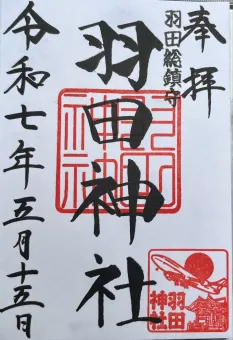 奉拝
羽田総鎮守
羽田神社
令和七年五月十五日
羽田
神社